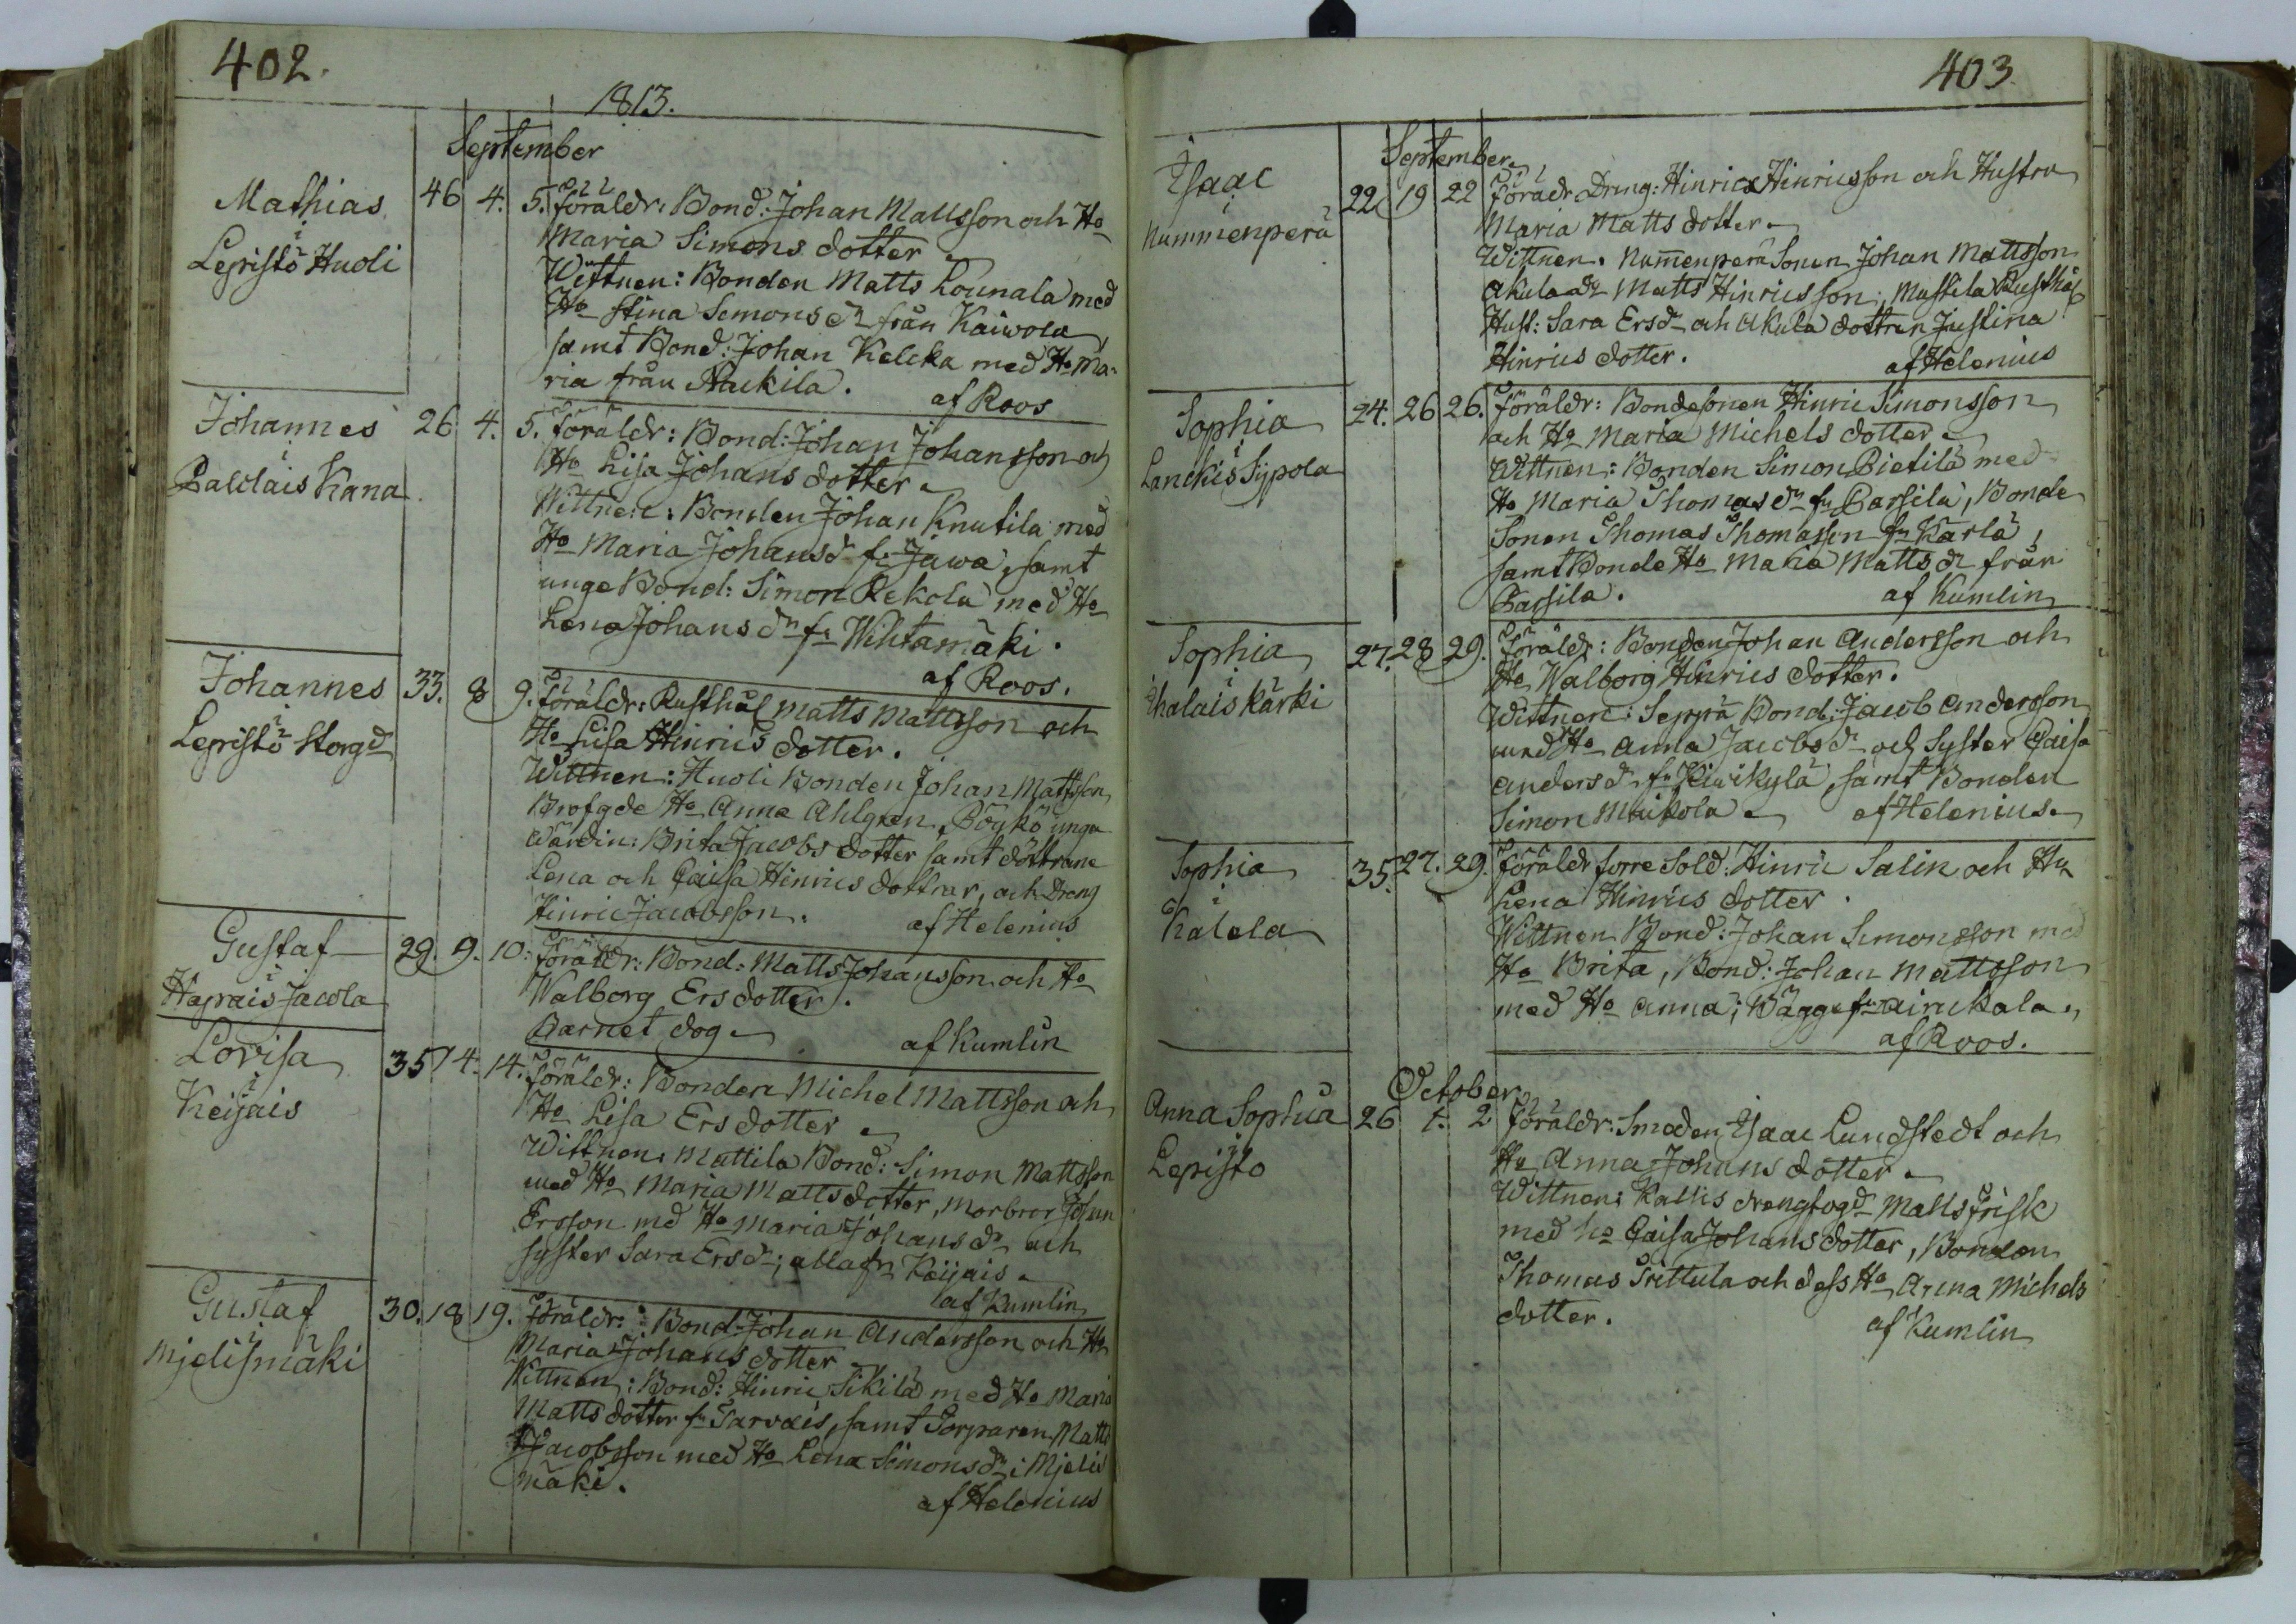 402.
1813.
September
Mathias
i
Lepistö Huoli
46 4. 5. föräldr: Bond: Johan Mattsson och Ho
Maria Simons dotter
Wittnen: Bonden Matts Lounala med
Ho Stina Simons dr från Kaiwola,
samt Bond: Johan Kelcka med Ho Ma-
ria från Raukila.
af Roos
Johannes
i
Paldais Kana
26 4. 5. föräldr: Bond: Johan Johansson och
Ho Lisa Johans dotter
Wittnen: Bonden Johan Knutila med
Ho Maria Johans dr fr Jawa, samt
unge Bond: Simon Rekola med Ho
Lena Johans dr fr Wihtamäki.
af Roos.
Johannes
i
Lepistö Storgd
33. 8 9. föräldr: Rusthål Matts Mattsson och
Ho Lisa Hinrics dotter.
Wittnen: Huoli Bonden Johan Mattsson,
Brofgde Ho Anna Ahlgren, Böykö unga
Wärdin: Brita Jacobs dotter samt döttrarne
Lena och Caisa Hinrics dottrar, och Dreng
Hinric Jacobsson.
af Helenius
Gustaf
i
Haprais Jacola
29. 9. 10. föräldr: Bond: Matts Johansson och Ho
Walborg Ers dotter.
Barnet dog
af Kumlin
Lovisa
i
Keijais
35 14. 14. föräldr: Bonden Michel Mattsson och
Ho Lisa Ers dotter
Wittnen: Mattila Bond: Simon Mattsson
med Ho Maria Matts dotter, Morbror Johan
Ersson md Ho Maria Johans dr och
syster Sara Ers dr; alla fr Keijais
af Kumlin
Gustaf
i
Mjelismäki
30. 18 19. föräldr: Bond: Johan Andersson och Ho
Maria Johans dotter
Wittnen: Bond: Hinric Sikilä med Ho Maria
Matts dotter fr Sarvais, samt Torparen Matts
Jacobsson med Ho Lena Simons dr i Mjelis
mäki.
af Helenius
403.
September
Isaac
i
Nummenperä
22 19 22 föräldr Dreng: Hinric Hinricsson och Hustru
Maria Matts dotter
Wittnen. Nummenperä Sonen Johan Mattsson
Akula dr Matts Hinricsson, Mattila Rusthål
Hust: Sara Ers dr och Akula dottren Justina
Hinrics dotter.
af Helenius
Sophia
i
Lanckis Sypola
24. 26 26. föräldr: Bondesonen Hinric Simonsson
och Ho Maria Michels dotter
Wittnen: Bonden Simon Pietilä med
Ho Maria Thomas dr fr Passila, Bonde
Sonen Thomas Thomasson fr Karla,
samt Bonde Ho Maria Matts dr från
Passila.
af Kumlin
Sophia
i
Ihalais Kärki
27. 28 29. föräldr: Bonden Johan Andersson och
Ho Walborg Hinrics dotter.
Wittnen: Seppä Bond: Jacob Andersson
med Ho Anna Jacobs dr och Syster Caisa
Anders dr fr Kiwikylä, samt Bonden
Simon Maikola
af Helenius
Sophia
i
Katela
35. 27. 29. föräldr forre Sold: Hinric Salin och Hu
Lena Hinrics dotter.
Wittnen Bond: Johan Simonsson med
Ho Brita, Bond: Johan Mattsson
med Ho Anna; Bägge fr Airickala
af Roos.
October
Anna Sophia
i
Lepistö
26 1. 2 föräldr: Smeden Isaac Lundstedt och
Ho Anna Johans dotter
Wittnen: Kallis drengfogd Matts Frisk
med Ho Caisa Johans dotter, Bonden
Thomas Prittula och dess Ho Anna Michels
dotter.
af Kumlin